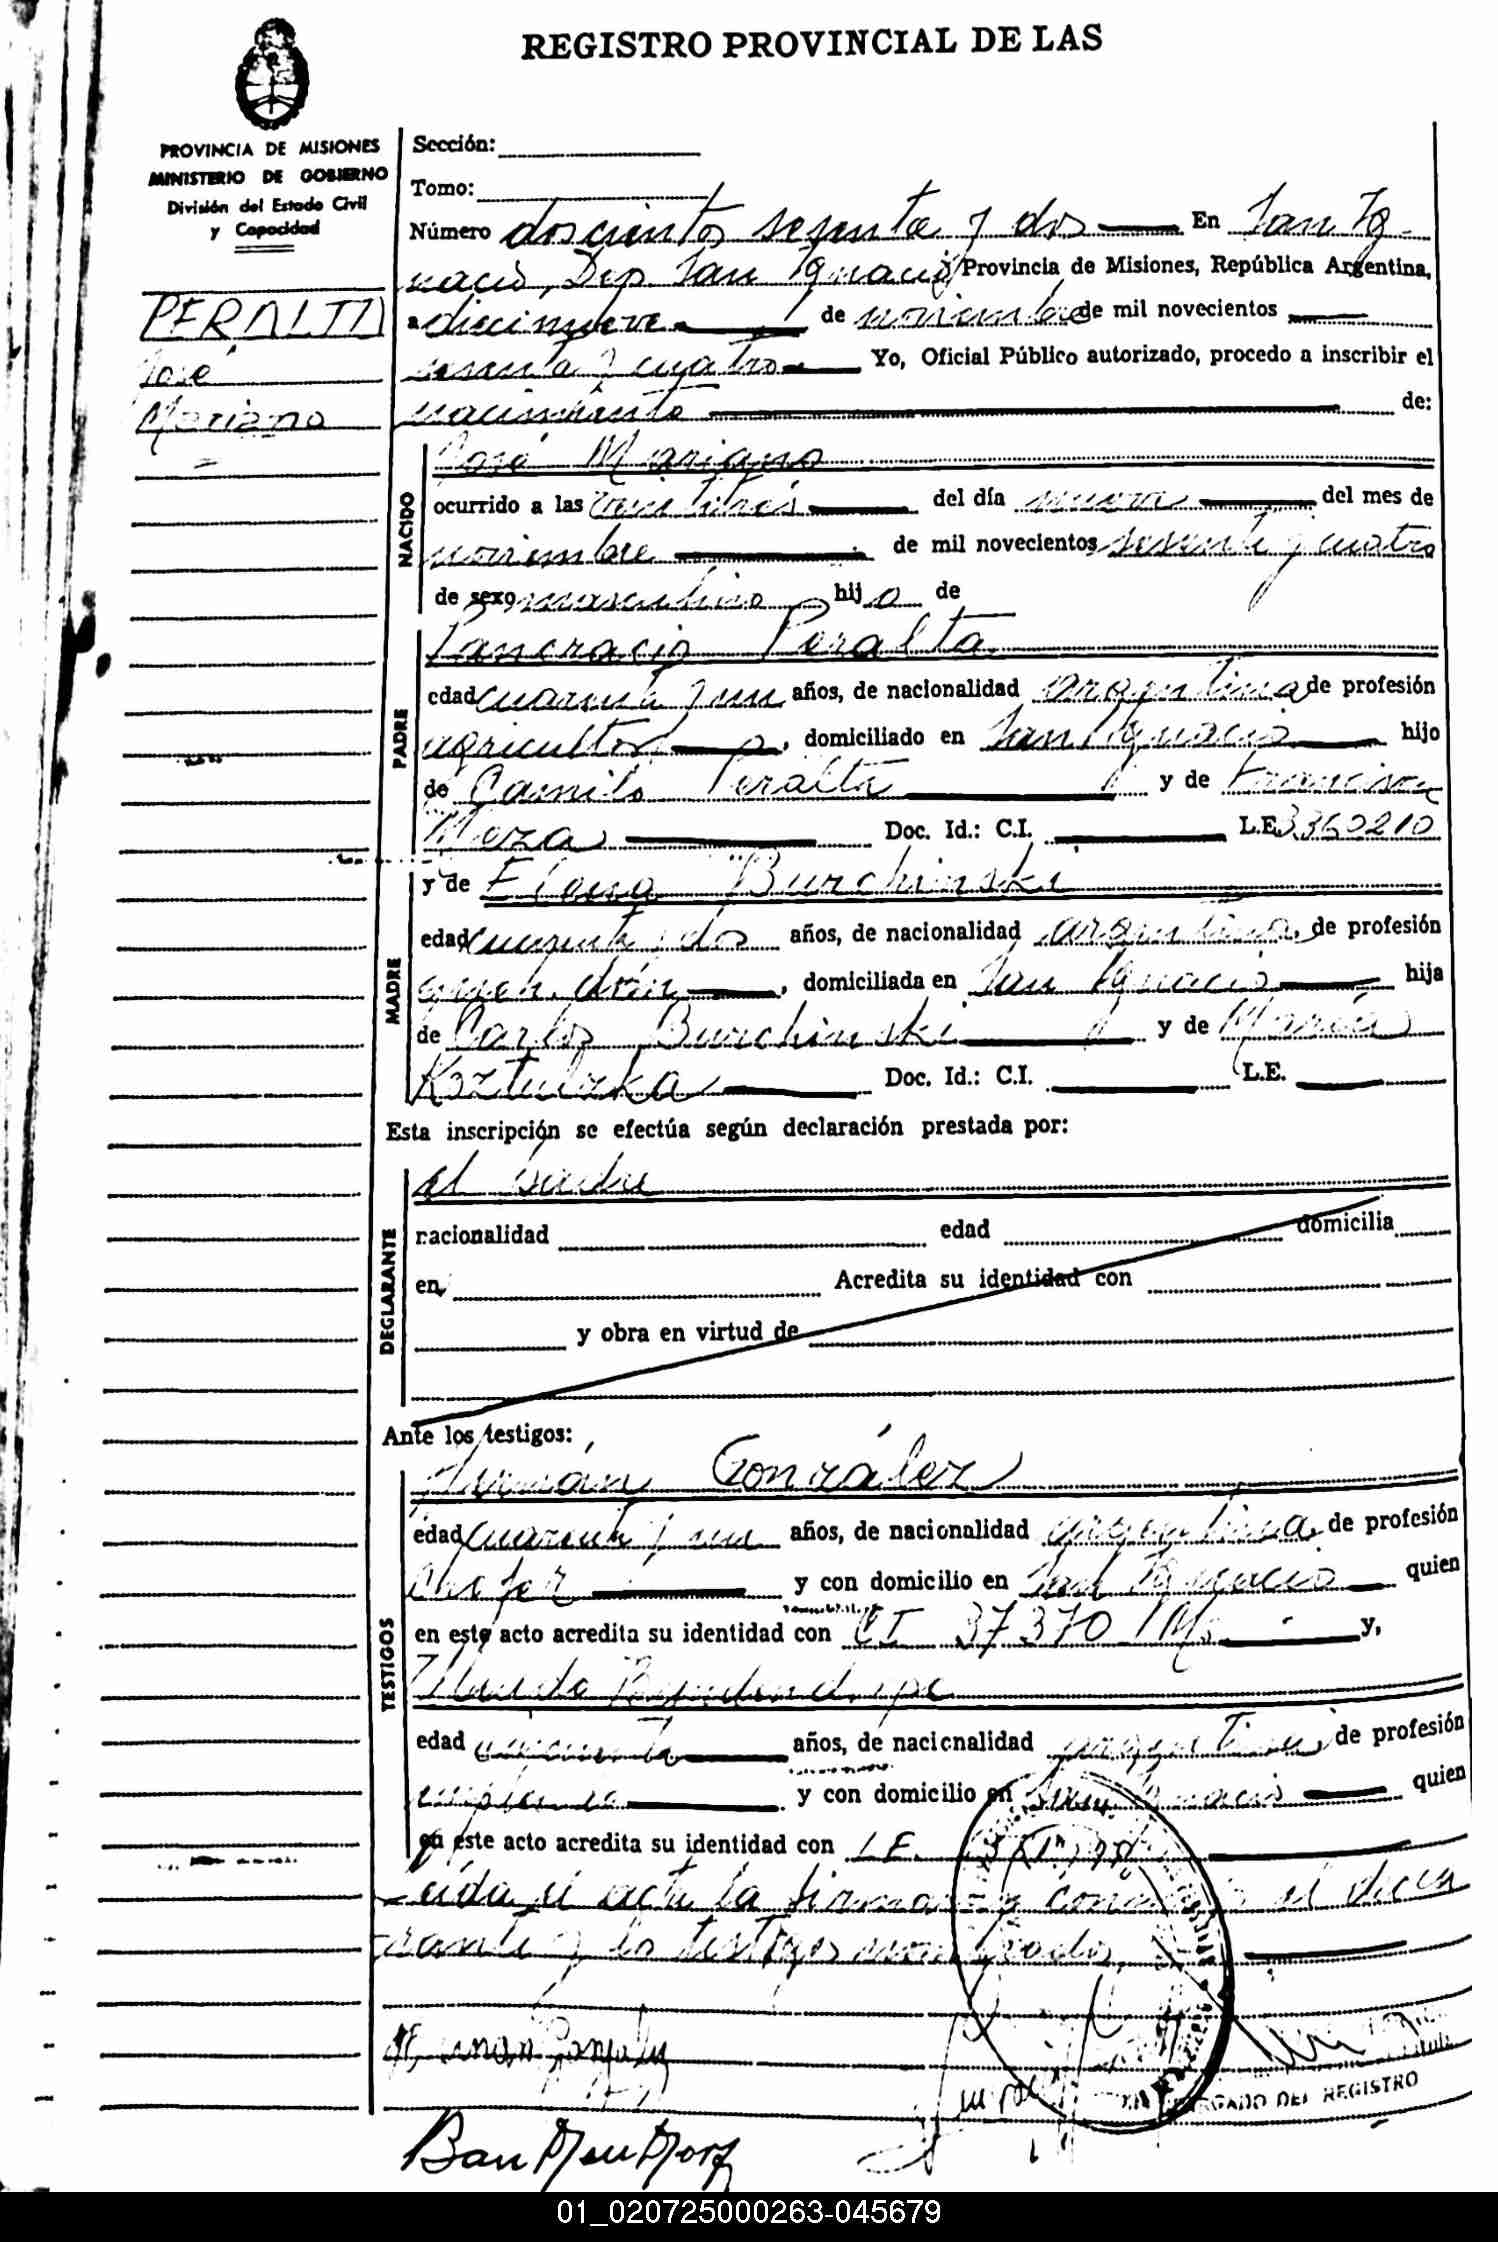 REGISTRO PROVINCIAL DE LAS
PROVINCIA DE MISIONES
MINISTERIO DE GOBIERNO
División del Estado Civil
y Capacidad
PERALTA
José
Mariano
Sección:
Tomo:
Número doscientos sesenta y dos En San Ig-
nacio, Dep. San Ignacio Provincia de Misiones, República Argentina,
a diecinueve de noviembre de mil novecientos
sesenta y cuatro Yo, Oficial Público autorizado, procedo a inscribir el
nacimiento de:
NACIDO
José Mariano
ocurrido a las veintitrés del día nueve del mes de
noviembre de mil novecientos sesenta y cuatro
de sexo masculino hijo de
PADRE
Pancracio Peralta
edad cuarenta y un años, de nacionalidad argentina de profesión
agricultor, domiciliado en San Ignacio hijo
de Camilo Peralta y de Francisca
Meza Doc. Id.: C.I. L.E. 3360210
MADRE
y de Elena Burchinski
edad cuarenta y dos años, de nacionalidad argentina, de profesión
domiciliada en San Ignacio hija
de Carlos Burchinski y de María
Doc. Id.: C.I. L.E.
Esta inscripción se efectúa según declaración prestada por:
DECLARANTE
el padre
nacionalidad edad domicilia
en Acredita su identidad con
y obra en virtud de
Ante los testigos:
TESTIGOS
González
edad cuarenta y un años, de nacionalidad argentina, de profesión
chofer y con domicilio en San Ignacio quien
en este acto acredita su identidad con CI 37370 y,
edad años, de nacionalidad argentina, de profesión
y con domicilio en San Ignacio quien
en este acto acredita su identidad con L.E.
Leída el acta la firman el decla
rante y los testigos nombrados
ENCARGADO DEL REGISTRO
01_020725000263-045679